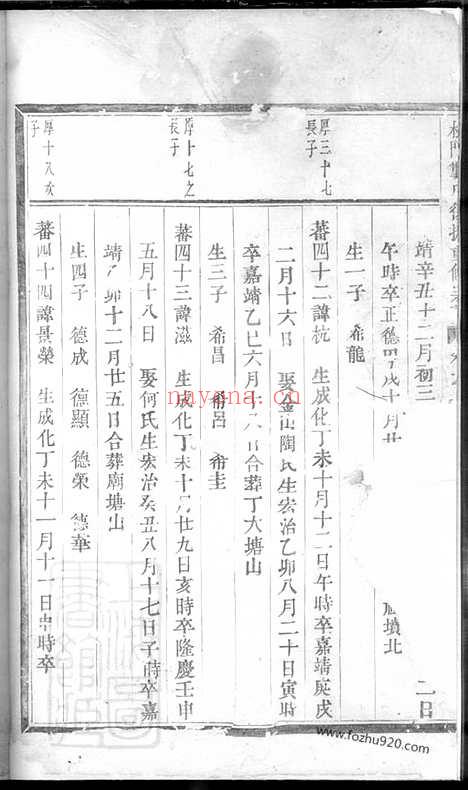 靖辛丑十二月初三
二日
午時卒正德甲戌十月廿
墳北
生一子 希龍
厚三十七
長子
蕃四十二諱杭 生成化丁未十月十二日午時卒嘉靖庚戌
二月十六日 娶金山陶氏生宏治乙卯八月二十日寅時
卒嘉靖乙巳六月 八日合葬丁大塘山
生三子 希昌 希呂 希圭
厚十七之
長子
蕃四十三諱滋 生成化丁未十月廿九日亥時卒隆慶壬申
五月十八日 娶何氏生宏治癸丑八月十七日子時卒嘉
靖 卯十二月廿五日合葬廟塘山
生四子 德成 德顯 德榮 德華
厚十八次
子
蕃四十四諱景榮 生成化丁未十一月十一日申時卒
nayona.cn
www.fozhu920.com